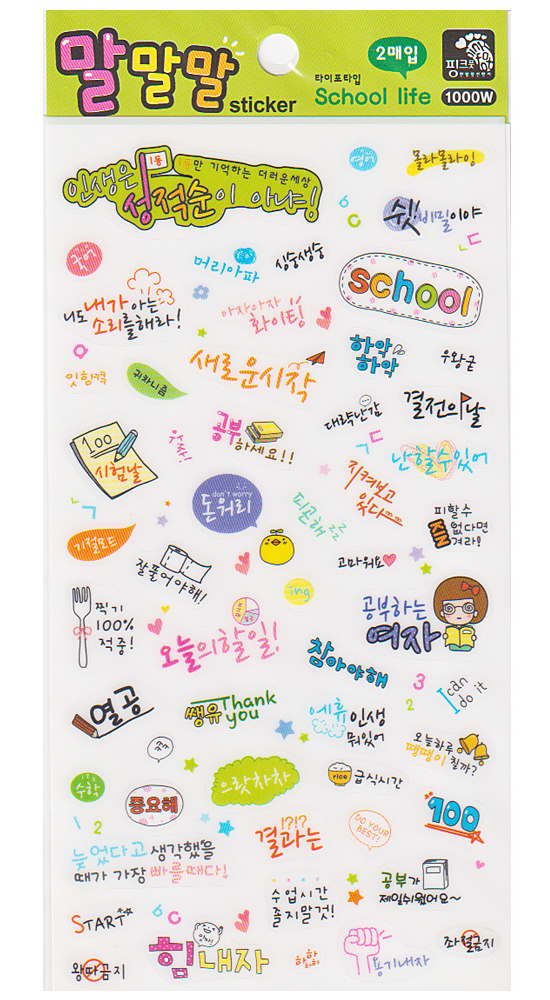 말말말
sticker
2매입
타이포타입
School life
핑크풋
1000W
인생은
1등
1등만 기억하는 더러운세상
성적순이 아냐!
영어
몰라몰라잉
쉿! 비밀이야
국어
머리아파
싱숭생숭
school
너도 내가 아는
소리를해라!
아자아자
화이팅
하악
하악
우왕굳
잇힝ㅋㅋ
귀차니즘
새로운시작
대략난감
결전의날
100
시험날
공부
하세요!!
난할수있어
지켜보고
있다
don't worry
돈워리
피곤해
피할수
없다면
즐겨라!
기절모드
잘풀어야해!
고마워요
ing
찍기
100%
적중!
오늘의할일!
공부하는
여자
참아야해
3
2
I can
do it
열공
쌩유 Thank
you
에휴 인생
뭐있어
오늘하루
땡땡이 칠까?
수학
중요해
으랏차차
rice
급식시간
100
1
2
!?!?
결과는
DO YOUR
BEST!
늦었다고 생각했을
때가 가장 빠를때다!
수업시간
졸지말것!
공부가
제일쉬웠어요~
START
왕따금지
힘내자
용기내자
좌절금지